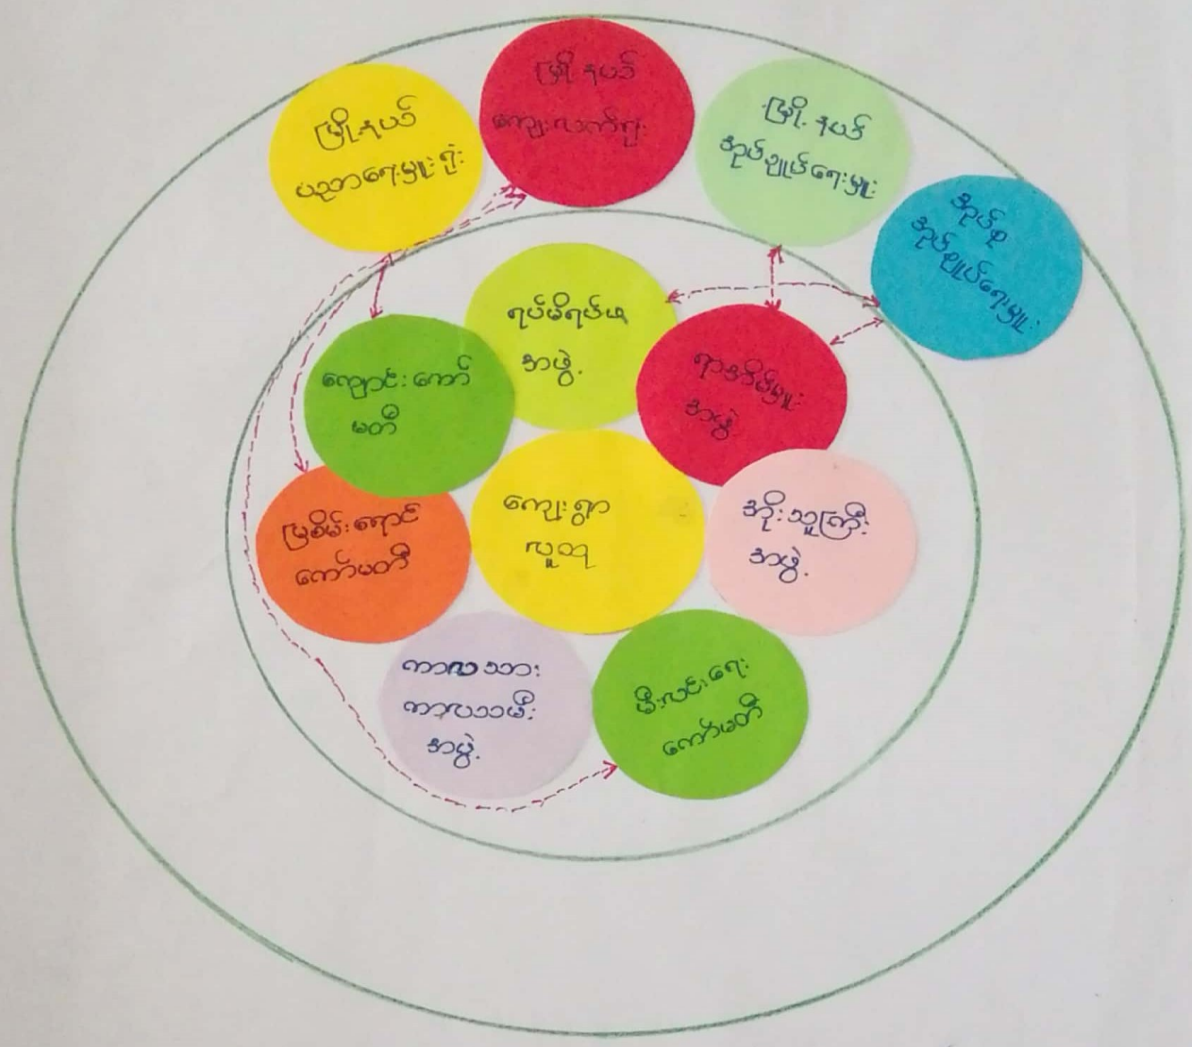 မြို့နယ်
ပညာရေးမှူးရုံး
မြို့နယ်
ကျေးလက်ရုံး
မြို့နယ်
အုပ်ချုပ်ရေးမှူး
အုပ်စု
အုပ်ချုပ်ရေးမှူး
ရပ်မိရပ်ဖ
အဖွဲ့
ကျောင်းကော်
မတီ
ရာအိမ်မှူး
အဖွဲ့
မြစိမ်းရောင်
ကော်မတီ
ကျေးရွာ
လူထု
အိုးသူကြီး
အဖွဲ့
ကာလသား
ကာလသမီး
အဖွဲ့
မီးလင်းရေး
ကော်မတီ